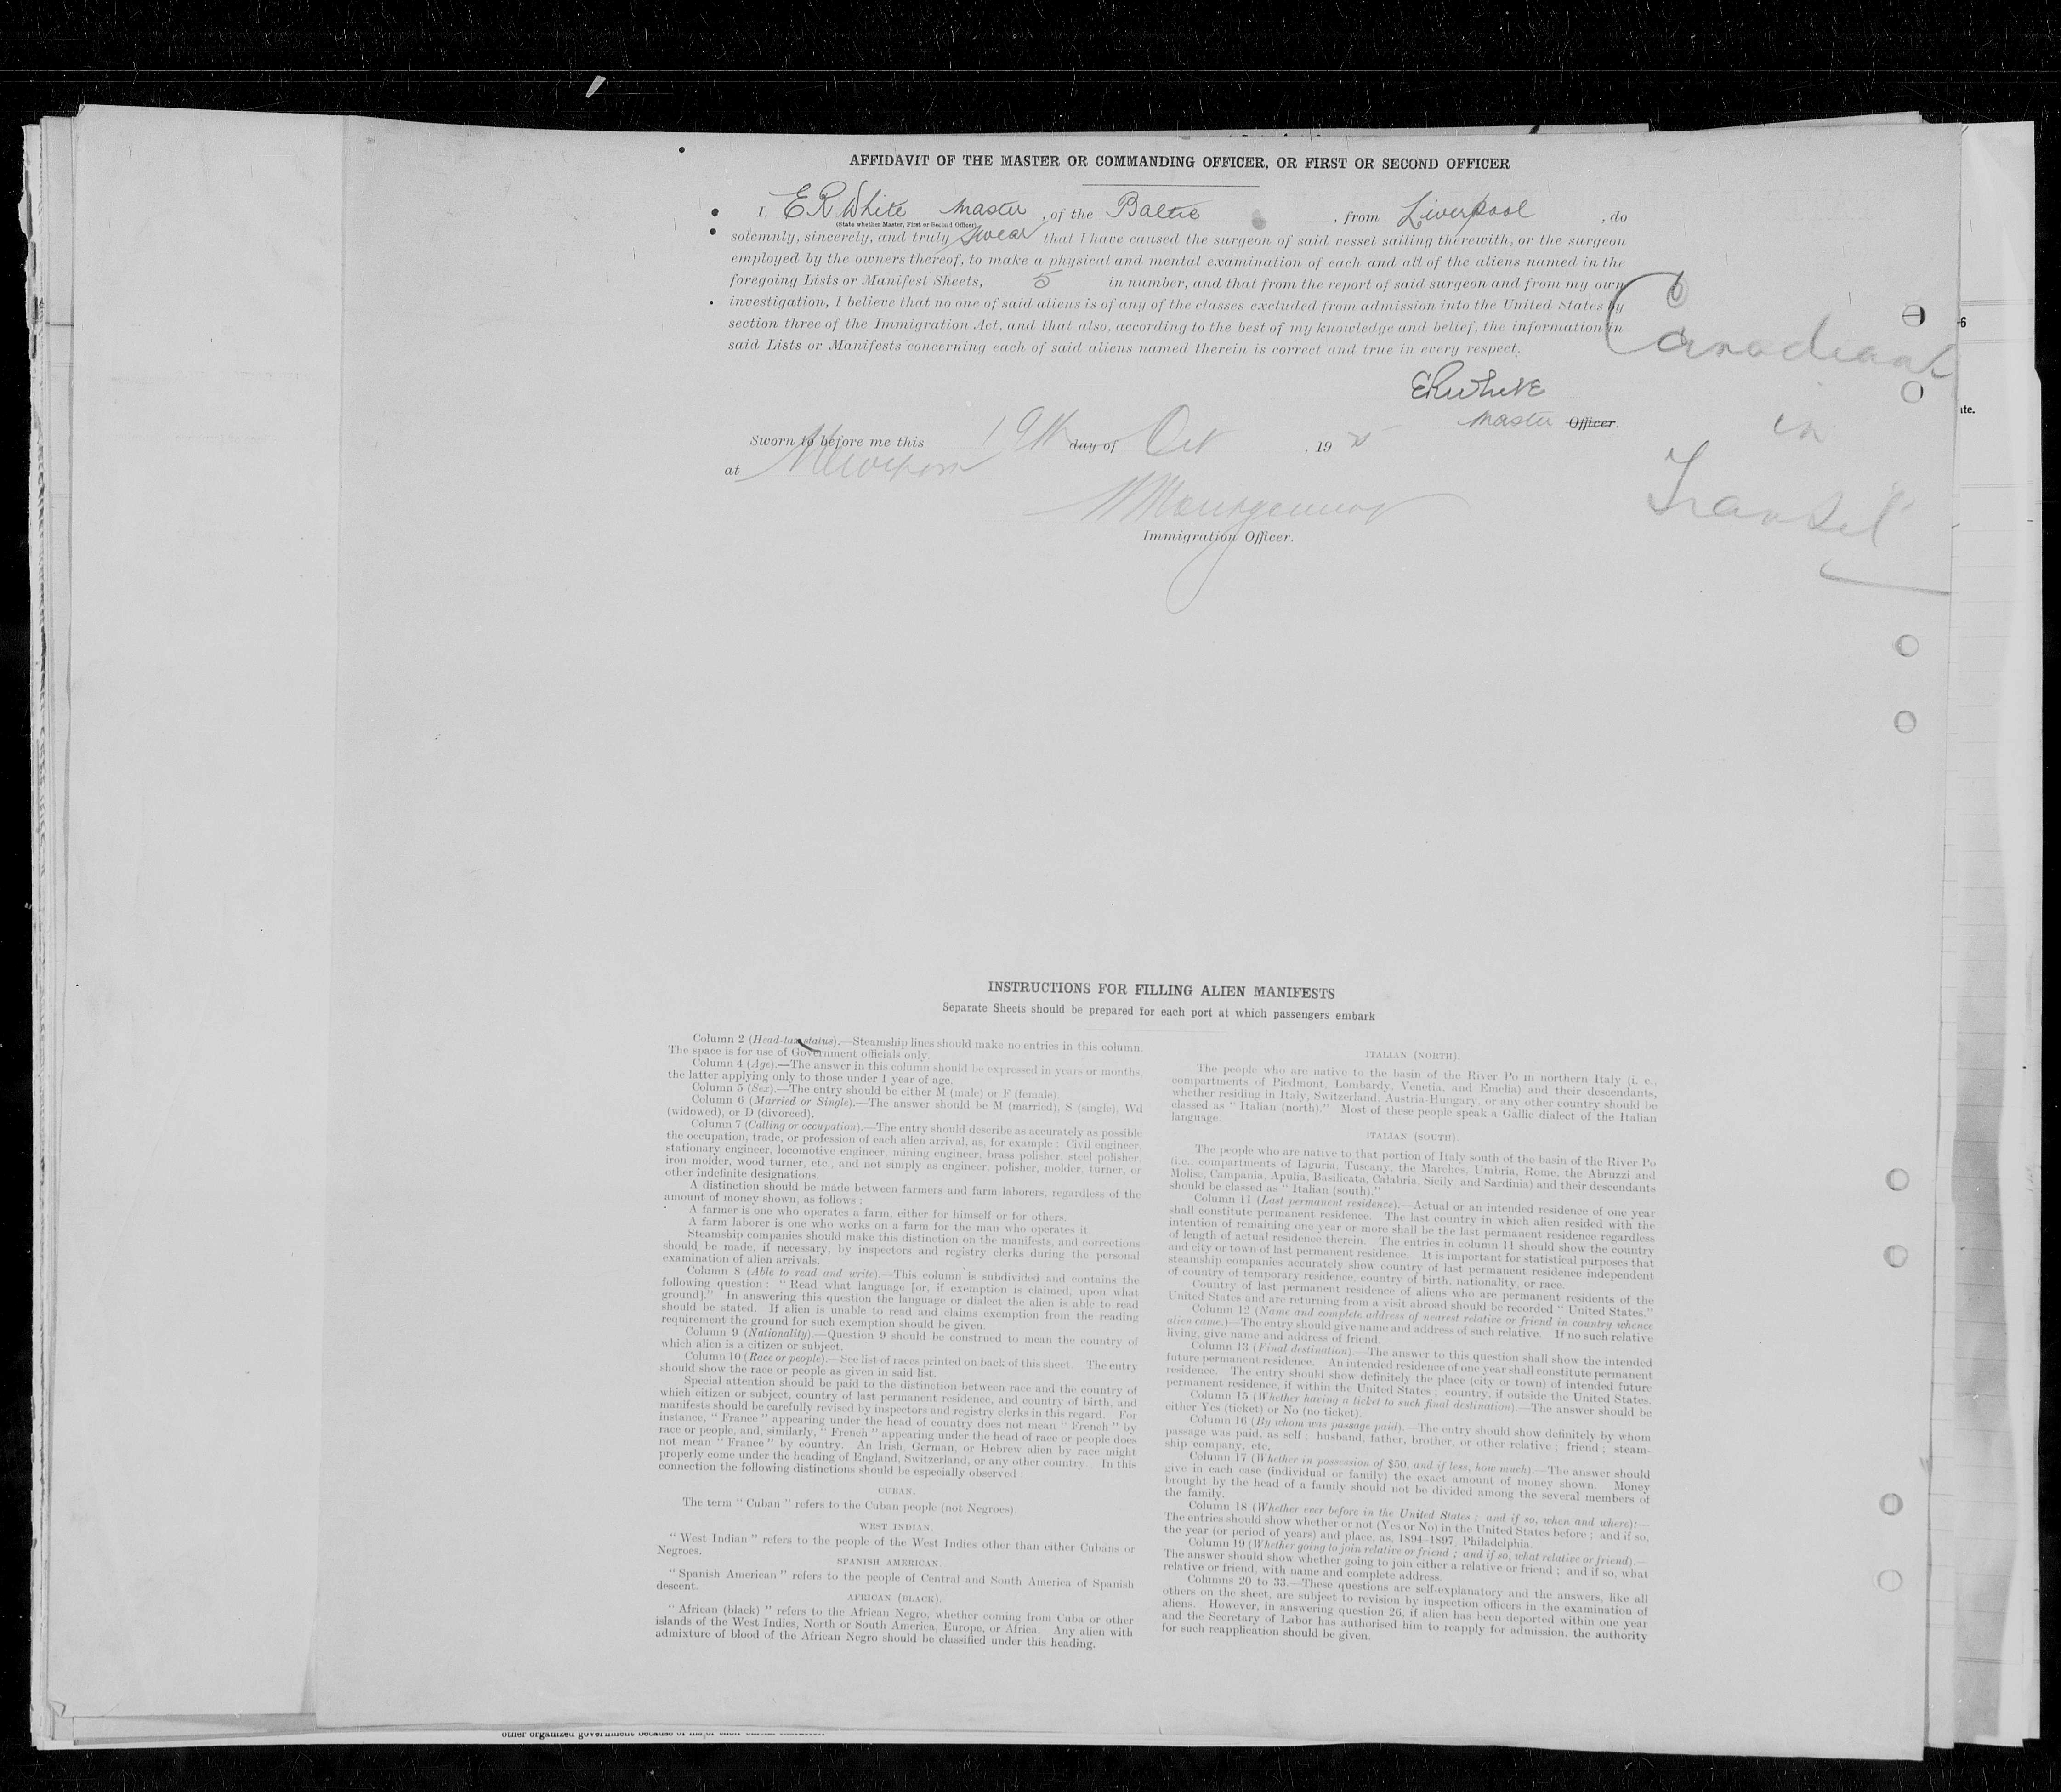 AFFIDAVIT OF THE MASTER OR COMMANDING OFFICER, OR FIRST OR SECOND OFFICER
I, E R White Master, of the Baltic, from Liverpool, do
(State whether Master, First or Second Officer)
solemnly, sincerely, and truly swear that I have caused the surgeon of said vessel sailing therewith, or the surgeon
employed by the owners thereof, to make a physical and mental examination of each and all of the aliens named in the
foregoing Lists or Manifest Sheets, 5 in number, and that from the report of said surgeon and from my own
investigation, I believe that no one of said aliens is of any of the classes excluded from admission into the United States by
section three of the Immigration Act, and that also, according to the best of my knowledge and belief, the information in
said Lists or Manifests concerning each of said aliens named therein is correct and true in every respect.
E R White
Master Officer.
Sworn to before me this 19th day of Oct, 19
at
Immigration Officer.
Canadians
in
Transit
-6
ate.
INSTRUCTIONS FOR FILLING ALIEN MANIFESTS
Separate Sheets should be prepared for each port at which passengers embark
Column 2 (Head-tax status).—Steamship lines should make no entries in this column.
The space is for use of Government officials only.
Column 4 (Age).—The answer in this column should be expressed in years or months,
the latter applying only to those under 1 year of age.
Column 5 (Sex).—The entry should be either M (male) or F (female).
Column 6 (Married or Single).—The answer should be M (married), S (single), Wd
(widowed), or D (divorced).
Column 7 (Calling or occupation).—The entry should describe as accurately as possible
the occupation, trade, or profession of each alien arrival, as, for example: Civil engineer,
stationary engineer, locomotive engineer, mining engineer, brass polisher, steel polisher,
iron molder, wood turner, etc., and not simply as engineer, polisher, molder, turner, or
other indefinite designations.
A distinction should be made between farmers and farm laborers, regardless of the
amount of money shown, as follows:
A farmer is one who operates a farm, either for himself or for others.
A farm laborer is one who works on a farm for the man who operates it.
Steamship companies should make this distinction on the manifests, and corrections
should be made, if necessary, by inspectors and registry clerks during the personal
examination of alien arrivals.
Column 8 (Able to read and write).—This column is subdivided and contains the
following question: "Read what language [or, if exemption is claimed, upon what
ground]." In answering this question the language or dialect the alien is able to read
should be stated. If alien is unable to read and claims exemption from the reading
requirement the ground for such exemption should be given.
Column 9 (Nationality).—Question 9 should be construed to mean the country of
which alien is a citizen or subject.
Column 10 (Race or people).—See list of races printed on back of this sheet. The entry
should show the race or people as given in said list.
Special attention should be paid to the distinction between race and the country of
which citizen or subject, country of last permanent residence, and country of birth, and
manifests should be carefully revised by inspectors and registry clerks in this regard. For
instance, "France" appearing under the head of country does not mean "French" by
race or people, and, similarly, "French" appearing under the head of race or people does
not mean "France" by country. An Irish, German, or Hebrew alien by race might
properly come under the heading of England, Switzerland, or any other country. In this
connection the following distinctions should be especially observed:
CUBAN.
The term "Cuban" refers to the Cuban people (not Negroes).
WEST INDIAN.
"West Indian" refers to the people of the West Indies other than either Cubans or
Negroes.
SPANISH AMERICAN.
"Spanish American" refers to the people of Central and South America of Spanish
descent.
AFRICAN (BLACK).
"African (black)" refers to the African Negro, whether coming from Cuba or other
islands of the West Indies, North or South America, Europe, or Africa. Any alien with
admixture of blood of the African Negro should be classified under this heading.
ITALIAN (NORTH).
The people who are native to the basin of the River Po in northern Italy (i. e.,
compartments of Piedmont, Lombardy, Venetia, and Emelia) and their descendants,
whether residing in Italy, Switzerland, Austria-Hungary, or any other country should be
classed as "Italian (north)." Most of these people speak a Gallic dialect of the Italian
language.
ITALIAN (SOUTH).
The people who are native to that portion of Italy south of the basin of the River Po
(i.e., compartments of Liguria, Tuscany, the Marches, Umbria, Rome, the Abruzzi and
Molise, Campania, Apulia, Basilicata, Calabria, Sicily and Sardinia) and their descendants
should be classed as "Italian (south)."
Column 11 (Last permanent residence).—Actual or an intended residence of one year
shall constitute permanent residence. The last country in which alien resided with the
intention of remaining one year or more shall be the last permanent residence regardless
of length of actual residence therein. The entries in column 11 should show the country
and city or town of last permanent residence. It is important for statistical purposes that
steamship companies accurately show country of last permanent residence independent
of country of temporary residence, country of birth, nationality, or race.
Country of last permanent residence of aliens who are permanent residents of the
United States and are returning from a visit abroad should be recorded "United States."
Column 12 (Name and complete address of nearest relative or friend in country whence
alien came.)—The entry should give name and address of such relative. If no such relative
living, give name and address of friend.
Column 13 (Final destination).—The answer to this question shall show the intended
future permanent residence. An intended residence of one year shall constitute permanent
residence. The entry should show definitely the place (city or town) of intended future
permanent residence, if within the United States; country, if outside the United States.
Column 15 (Whether having a ticket to such final destination).—The answer should be
either Yes (ticket) or No (no ticket).
Column 16 (By whom was passage paid).—The entry should show definitely by whom
passage was paid, as self; husband, father, brother, or other relative; friend; steam-
ship company, etc.
Column 17 (Whether in possession of $50, and if less, how much).—The answer should
give in each case (individual or family) the exact amount of money shown. Money
brought by the head of a family should not be divided among the several members of
the family.
Column 18 (Whether ever before in the United States; and if so, when and where).—
The entries should show whether or not (Yes or No) in the United States before; and if so,
the year (or period of years) and place, as, 1894-1897, Philadelphia.
Column 19 (Whether going to join relative or friend; and if so, what relative or friend).—
The answer should show whether going to join either a relative or friend; and if so, what
relative or friend, with name and complete address.
Columns 20 to 33.—These questions are self-explanatory and the answers, like all
others on the sheet, are subject to revision by inspection officers in the examination of
aliens. However, in answering question 26, if alien has been deported within one year
and the Secretary of Labor has authorised him to reapply for admission, the authority
for such reapplication should be given.
other organized government because of his or